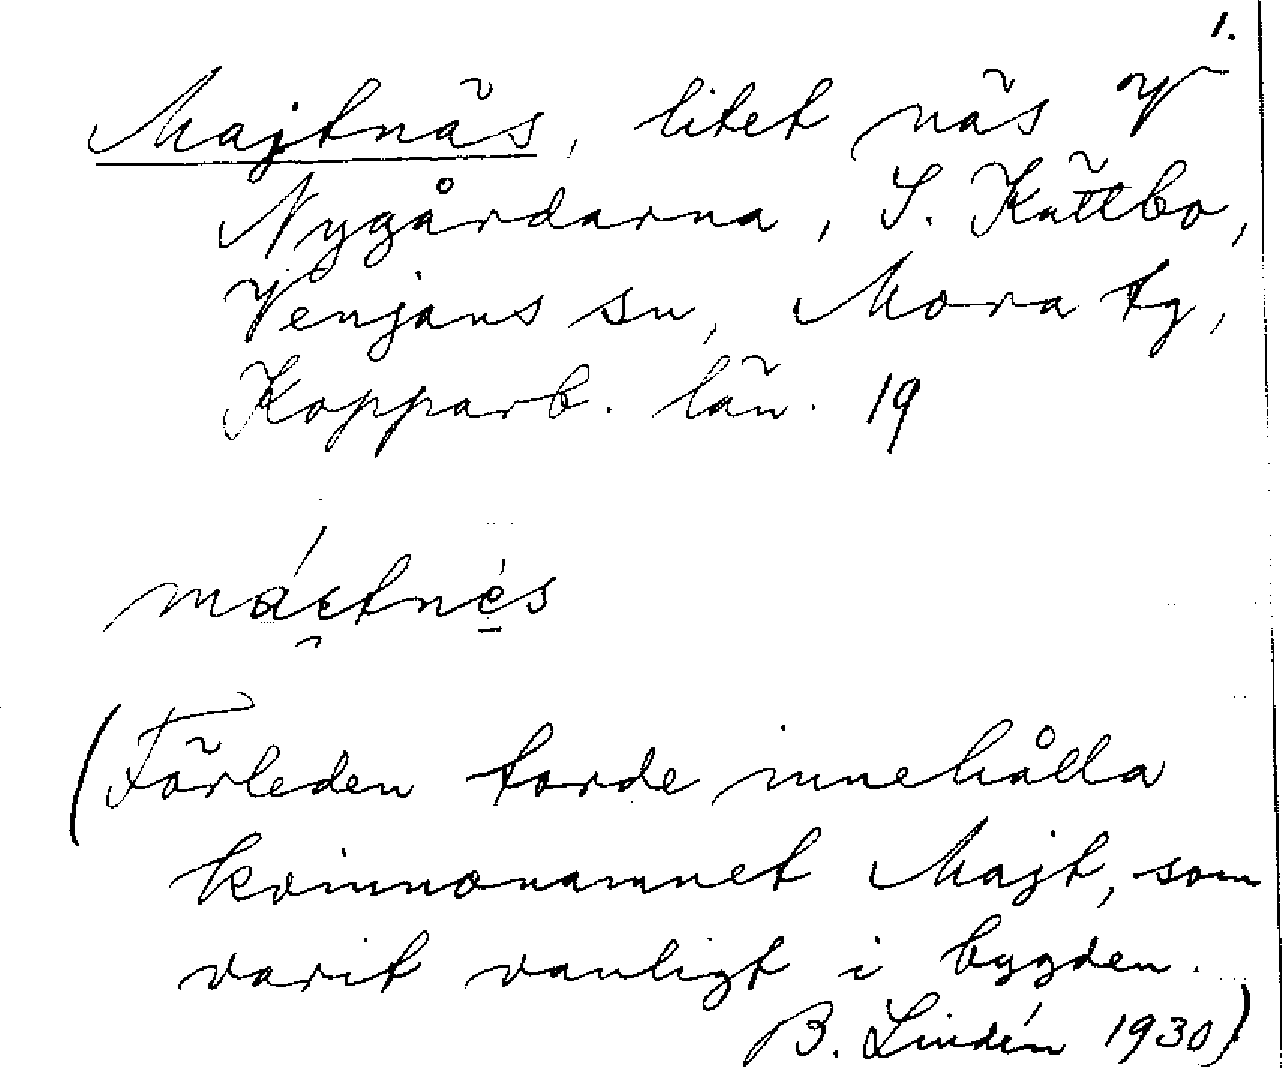 1.
Majtnäs, litet näs V
Nygårdarna, S. Kättbo,
Venjans sn, Mora tg,
Kopparb. län. 19
máɛtnès
(Förleden torde innehålla
kvinnonamnet Majt, som
varit vanligt i bygden.
B. Lindén 1930)